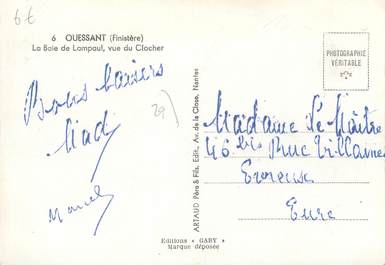 6€
6 OUESSANT (Finistère)
La Baie de Lampaul, vue du Clocher
PHOTOGRAPHIE
VÉRITABLE
Bons baisers
Marcel
29
ARTAUD Père & Fils, Edit., Av. de la Close, Nantes
Madame Le Maître
46 bis Rue
Evreux
Eure
Editions "GABY"
Marque déposée